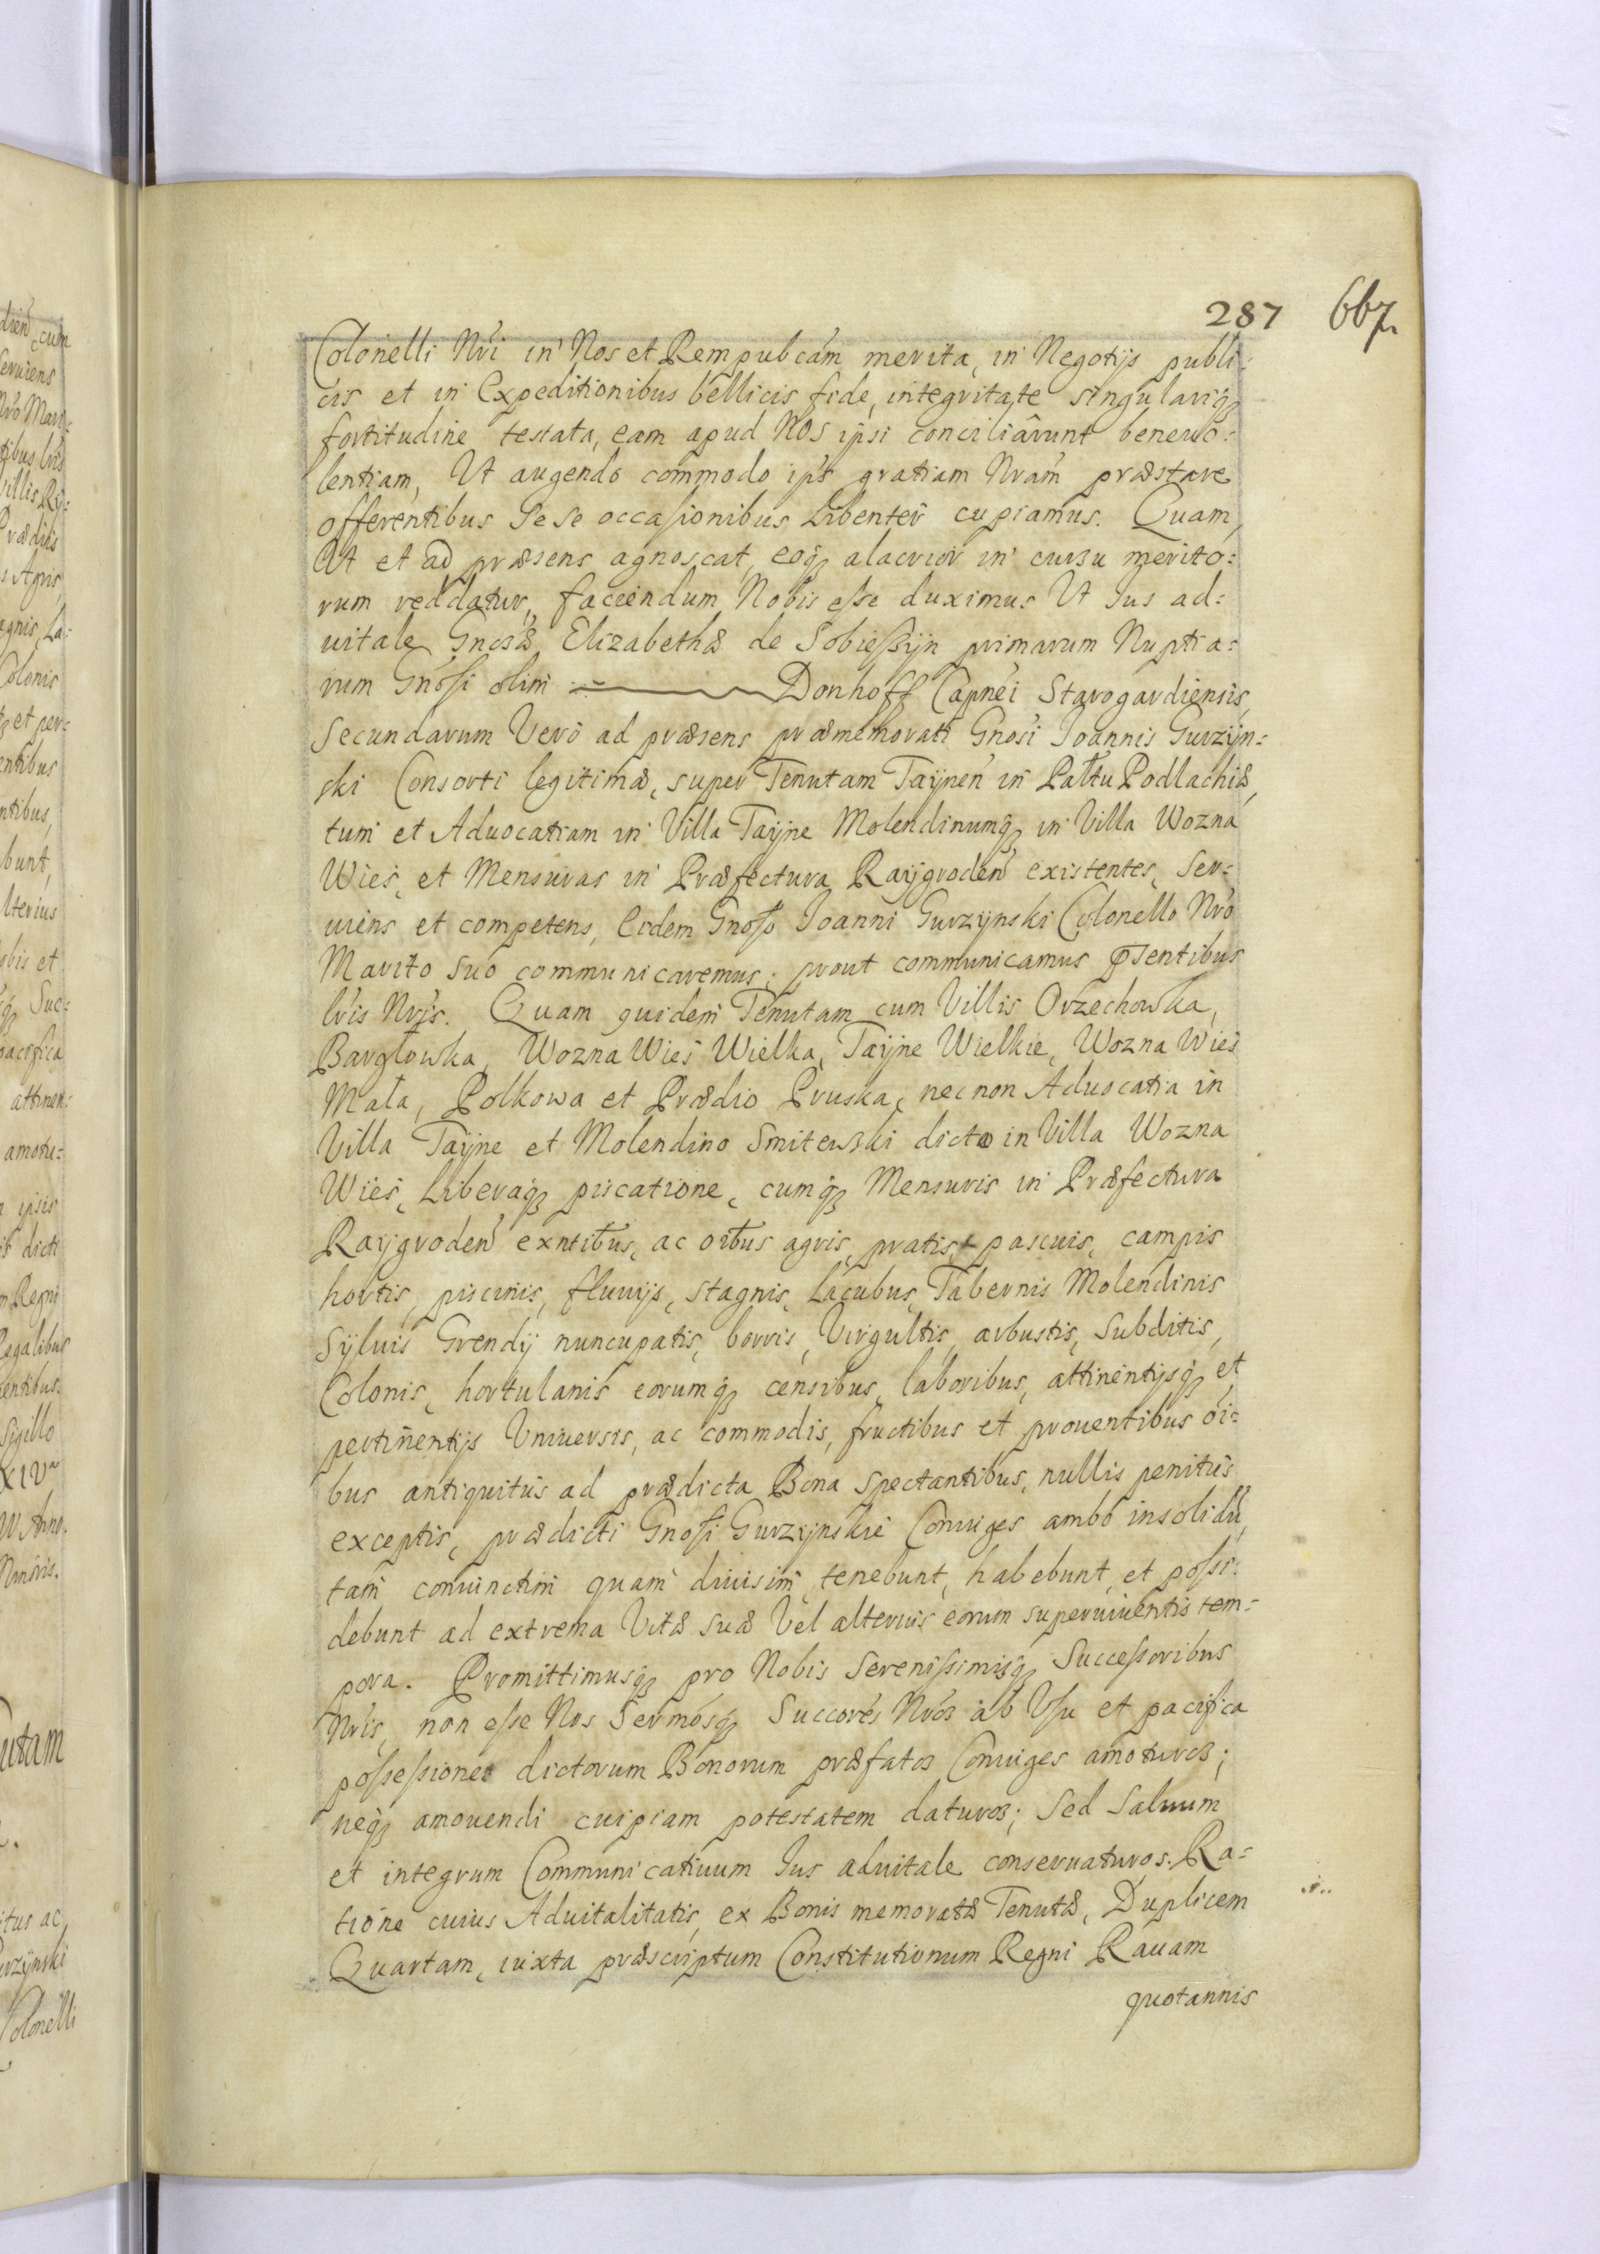 287 667.
Colonelli Nri in Nos et Rempubcam merita, in Negotijs publi:
cis et in Expeditionibus bellicis fide, integritate singulariq;
fortitudine testata, eam apud Nos ipsi conciliârunt beneuo:
lentiam, Ut augendo commodo ips gratiam Nram præstare
offerentibus Sese occasionibus Libenter cupiamus. Quam,
Ut et ad præsens agnoscat, eoq; alacrior in cursu merito:
rum reddatur, faciendum Nobis esse duximus Ut Jus ad:
uitale Gnosæ Elizabethæ de Sobiessyn primarum Nuptia:
rum Gnosi olim Donhoff Capnei Starogardiensis,
Secundarum Verò ad præsens præmemorati Gnosi Joannis Gurzÿn:
ski Consorti legitimæ, super Tenutam Taÿnen in Pałtu Podlachiæ,
tum et Aduocatiam in Villa Taÿne Molendinumq; in Villa Wozna
Wieś, et Mensuras in Præfectura Raÿgroden existentes, Ser:
uiens et competens, Eidem Gnoso Joanni Gurzÿnski Colonello Nro
Marito suo communicaremus: prout communicamus pSentibus
lris Nrjs. Quam quidem Tenutam cum Villis Orzechowka,
Bargłowka, Wozna Wieś Wielka, Taÿne Wielkie, Wozna Wieś
Mała, Polkowa et Prædio Pruska, necnon Aduocatia in
Villa Taÿne et Molendino Smitewski dicto in Villa Wozna
Wieś, Liberaq; piscatione, cumq; Mensuris in Præfectura
Raÿgroden exntibus, ac oibus agris, pratis, pascuis, campis
hortis, piscinis, fluuijs, stagnis, Lacubus, Tabernis Molendinis
Sÿluis Grendÿ nuncupatis, borris, Virgultis, arbustis, Subditis,
Colonis, hortulanis eorumq; censibus, laboribus, attinentijsq; et
pertinentijs Vniuersis, ac commodis, fructibus et prouentibus oi:
bus antiquitus ad prædicta Bona spectantibus, nullis penitus
exceptis, prædicti Gnosi Gurzÿnskie Coniuges ambo insolidu,
tam coniunctim quam diuisim tenebunt, habebunt, et possi:
debunt ad extrema Vitæ suæ Vel alterius eorum superuiuentis tem:
pora. Promittimusq; pro Nobis Serenissimisq; Successoribus
Nris, non esse Nos Sermosq; Succores Nros ab Usu et pacifica
possessione dictorum Bonorum præfatos Coniuges amoturos;
neq; amouendi cuipiam potestatem daturos; Sed Saluum
et integrum Communicatiuum Jus aduitale conseruaturos. Ra:
tione cuius Aduitalitatis, ex Bonis memoratæ Tenutæ, Duplicem
Quartam, iuxta præscriptum Constitutionum Regni Rauam
quotannis